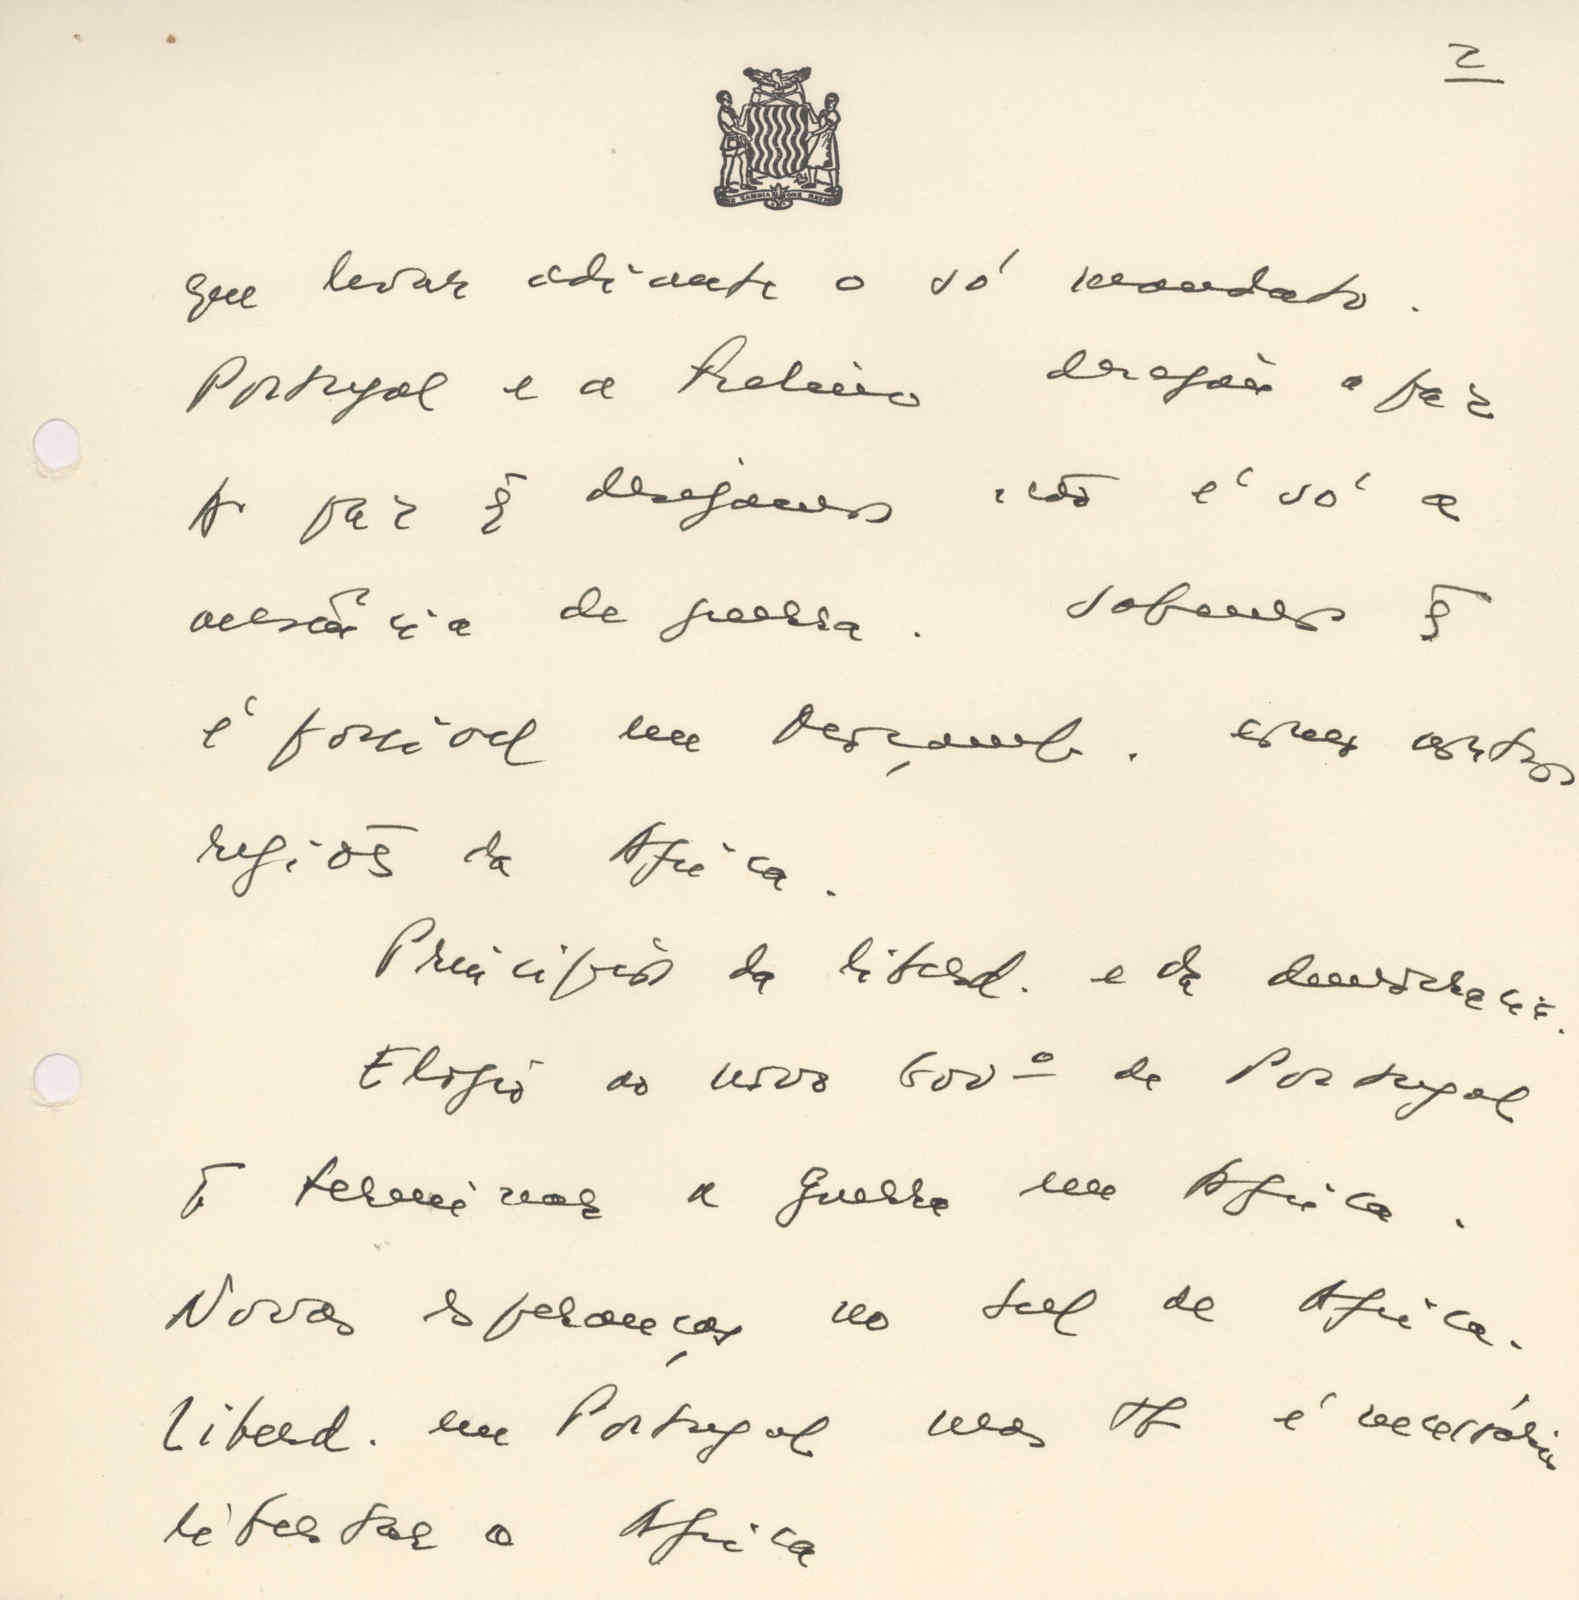 2
ZAMBIA ONE NATION
que levar adiante o só mandato.
Portugal e a Frelimo desejam a paz
A paz q̄ desejamos não é só a
ausência de guerra. Sabemos q̄
é possível em Moçamb. como outras
regiões da Africa.
Principios da liberd. e da democracia.
Elogio ao novo Govº de Portugal
p̄ terminar a guerra em Africa.
Novas esperanças no sul de Africa.
Liberd. em Portugal mas tb é necessário
libertar a Africa